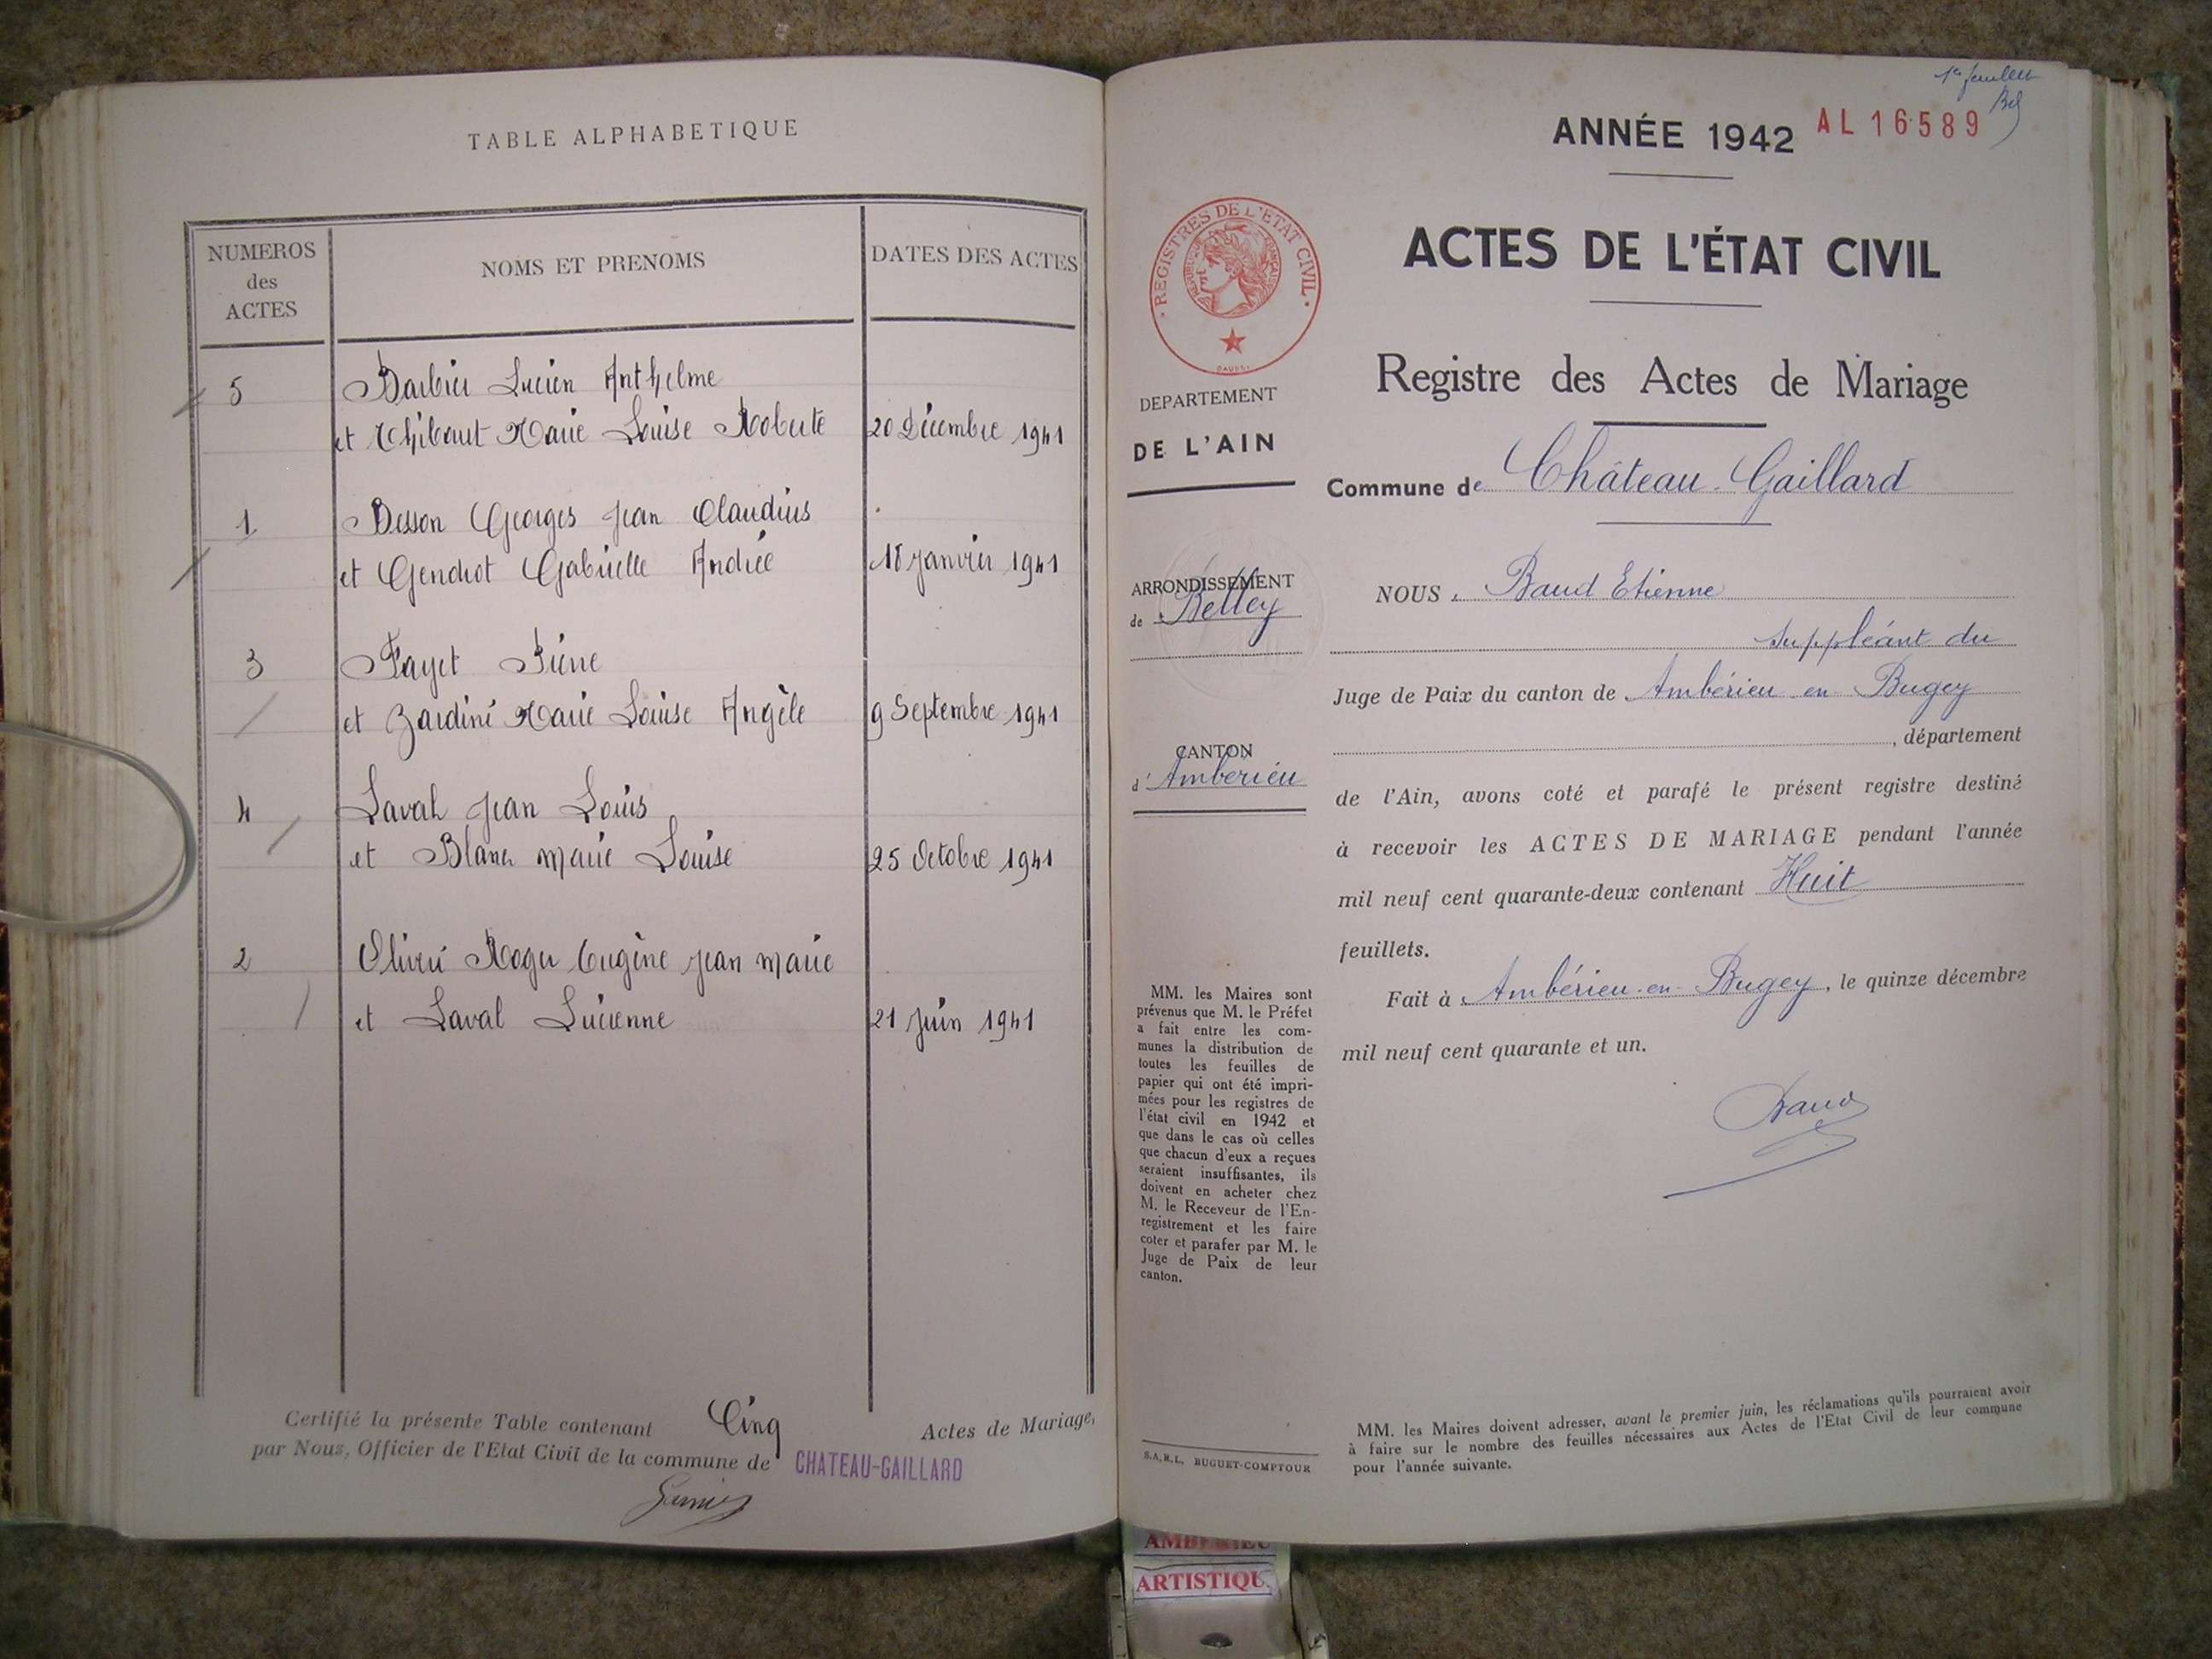 TABLE ALPHABETIQUE
NUMEROS
des
ACTES
NOMS ET PRENOMS
DATES DES ACTES
5
Barbier Lucien Anthelme
et Thibaut Marie Louise Roberte
20 Décembre 1941
1
Besson Georges Jean Claudius
et Gendrot Gabrielle Andrée
18 Janvier 1941
3
Fayet Pierre
et Zardini Marie Louise Angèle
9 Septembre 1941
4
Laval Jean Louis
et Blanc Marie Louise
25 Octobre 1941
2
Olivri Roger Eugène Jean Marie
et Laval Lucienne
21 Juin 1941
Certifié la présente Table contenant Cinq Actes de Mariage,
par Nous, Officier de l'Etat Civil de la commune de CHATEAU-GAILLARD
1er feuillet
ANNÉE 1942
AL 16589
REGISTRES DE L'ÉTAT CIVIL
ACTES DE L'ÉTAT CIVIL
Registre des Actes de Mariage
DEPARTEMENT
DE L'AIN
Commune de Château-Gaillard
ARRONDISSEMENT
de Belley
CANTON
d'Ambérieu
NOUS, Baud Etienne
suppléant du
Juge de Paix du canton de Ambérieu en Bugey
, département
de l'Ain, avons coté et parafé le présent registre destiné
à recevoir les ACTES DE MARIAGE pendant l'année
mil neuf cent quarante-deux contenant Huit
feuillets.
Fait à Ambérieu-en-Bugey, le quinze décembre
mil neuf cent quarante et un.
Baud
MM. les Maires sont
prévenus que M. le Préfet
a fait entre les com-
munes la distribution de
toutes les feuilles de
papier qui ont été impri-
mées pour les registres de
l'état civil en 1942 et
que dans le cas où celles
que chacun d'eux a reçues
seraient insuffisantes, ils
doivent en acheter chez
M. le Receveur de l'En-
registrement et les faire
coter et parafer par M. le
Juge de Paix de leur
canton.
S.A.R.L. BUGUET-COMPTOUR
MM. les Maires doivent adresser, avant le premier juin, les réclamations qu'ils pourraient avoir
à faire sur le nombre des feuilles nécessaires aux Actes de l'Etat Civil de leur commune
pour l'année suivante.
AMBERIEU
ARTISTIQU